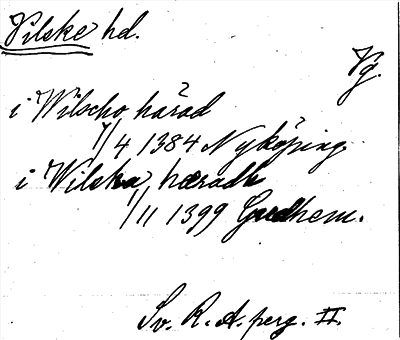 Vilske hd.
Vg.
i Wilscho härad
7/4 1384 Nyköping
i Wilska hæradh
1/11 1399 Gudhem.
Sv. R. A. perg. II.